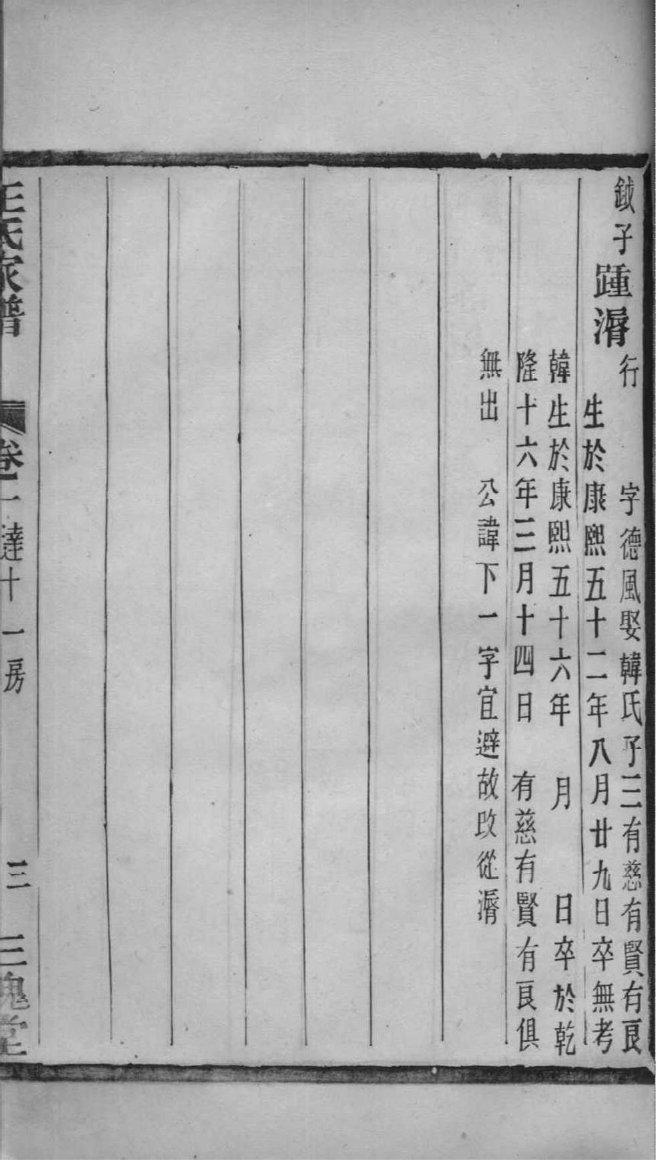 鉞子踵漘行 字德風娶韓氏子三有慈有賢有良
生於康熙五十二年八月廿九日卒無考
韓生於康熙五十六年 月 日卒於乾
隆十六年三月十四日 有慈有賢有良俱
無出 公諱下一字宜避故改從漘
王氏家譜 卷一達十一房 三 三槐堂